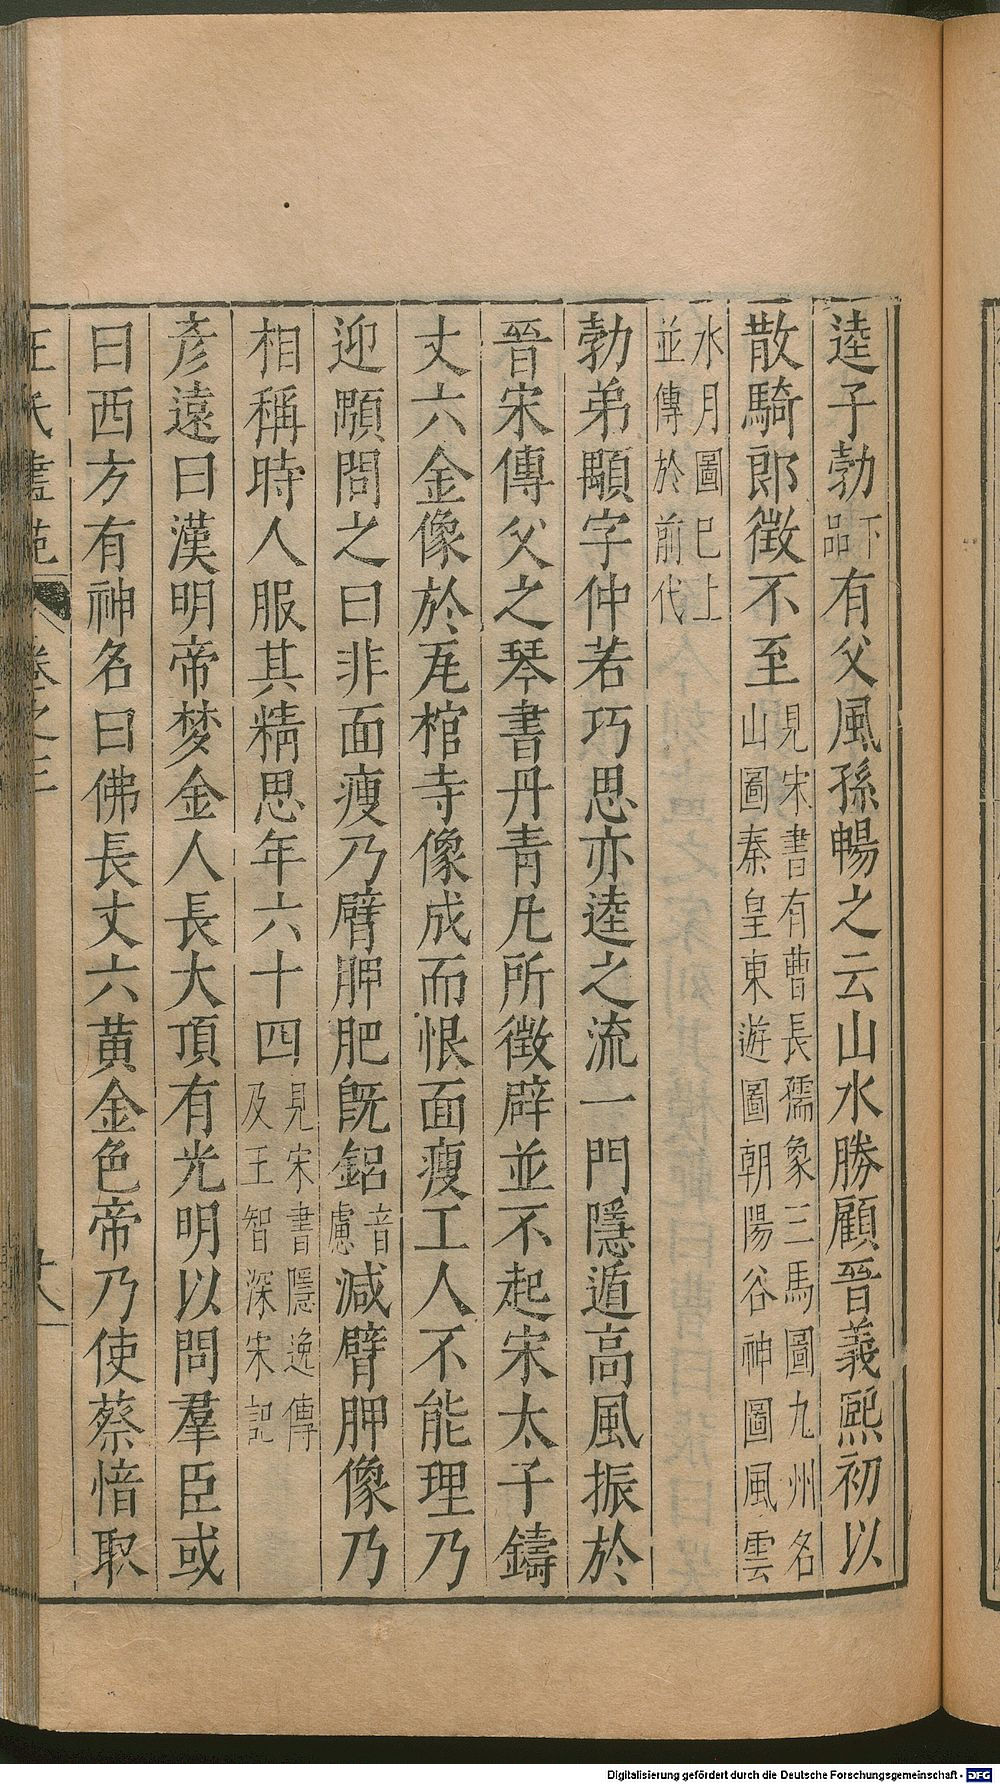 逵子勃下品有父風孫暢之云山水勝顧晉義熙初以
散騎郎徵不至見宋書有曹長孺象三馬圖九州名山圖秦皇東遊圖朝陽谷神圖風雲
水月圖已上並傳於前代
勃弟顒字仲若巧思亦逵之流一門隱遁高風振於
晉宋傳父之琴書丹青凡所徵辟並不起宋太子鑄
丈六金像於瓦棺寺像成而恨面瘦工人不能理乃
迎顒問之曰非面瘦乃臂胛肥既鋁音慮減臂胛像乃
相稱時人服其精思年六十四見宋書隱逸傳及王智深宋記
彥遠曰漢明帝梦金人長大頂有光明以問羣臣或
曰西方有神名曰佛長丈六黃金色帝乃使蔡愔取
王氏畫苑 卷之三 十八
Digitalisierung gefördert durch die Deutsche Forschungsgemeinschaft - DFG